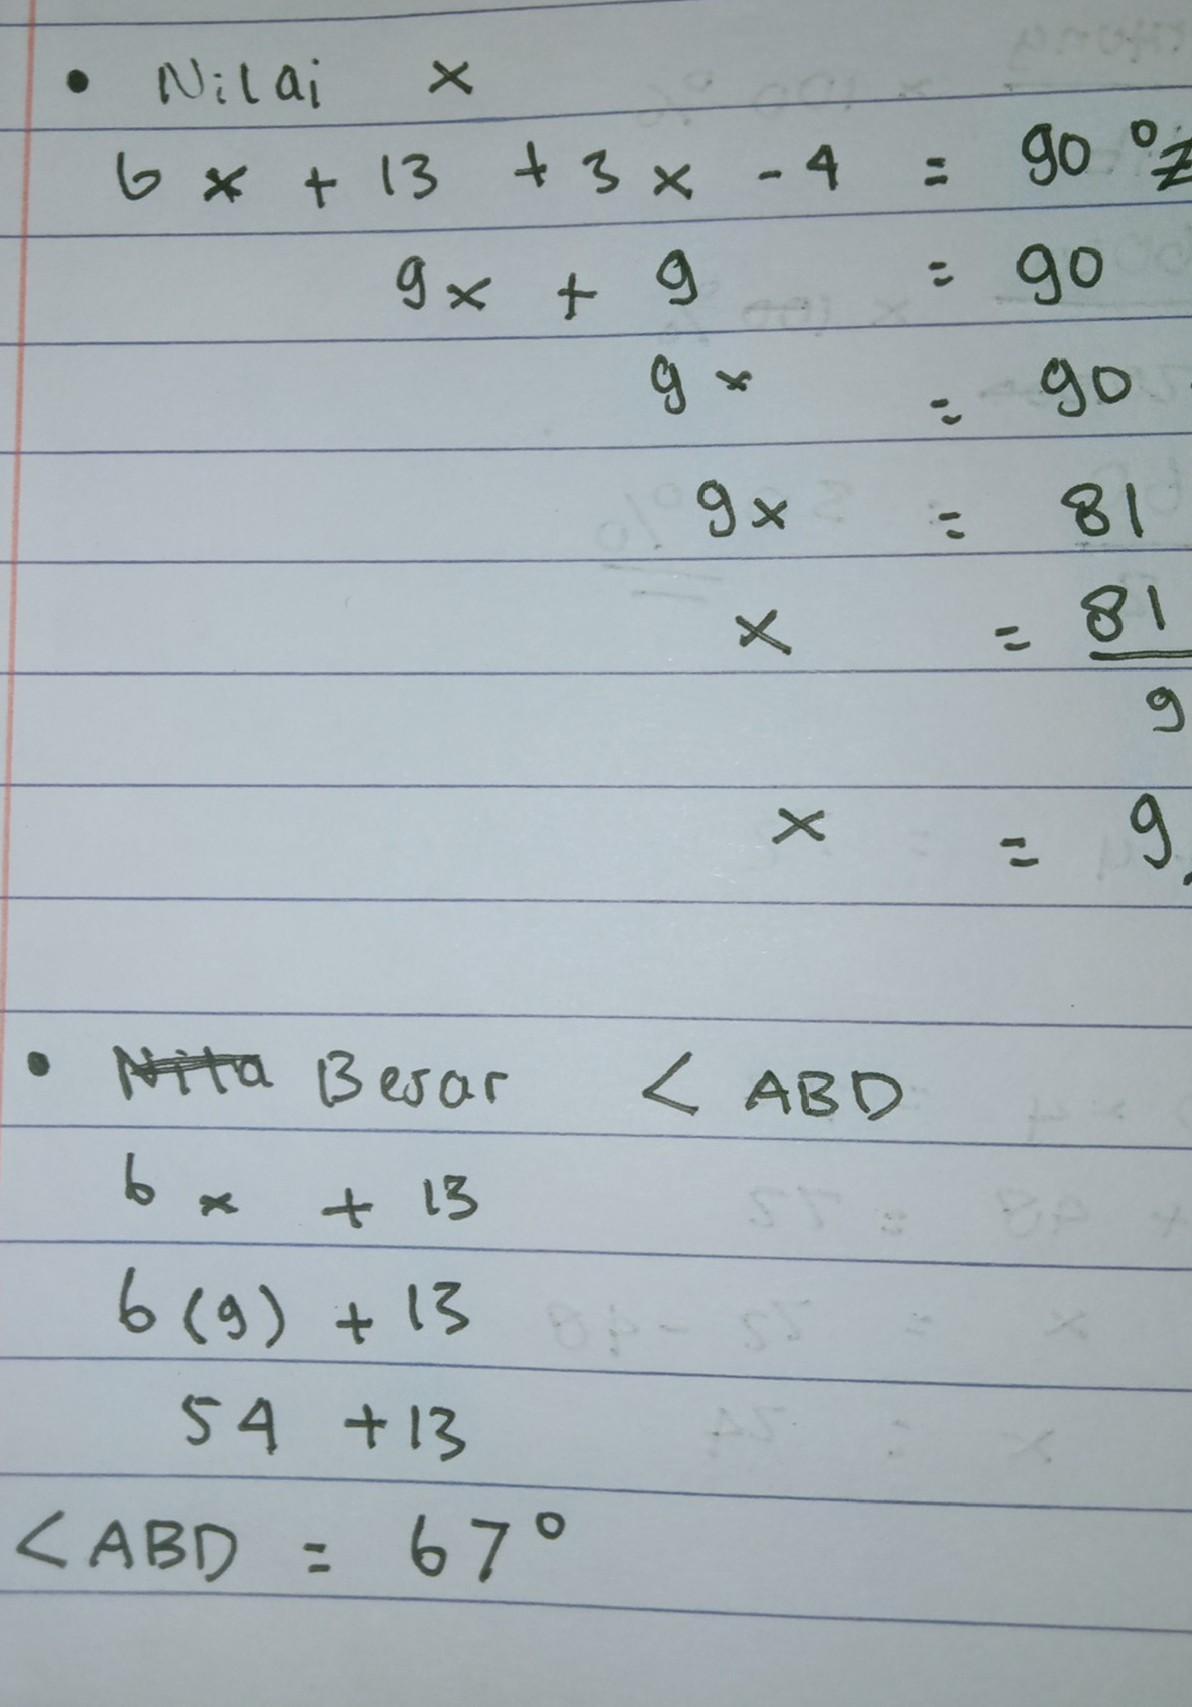 • Nilai x
6x + 13 + 3x - 4 = 90°
9x + 9 = 90
9x = 90
9x = 81
x = 81
9
x = 9
• Nita Besar < ABD
6x + 13
6(9) + 13
54 + 13
< ABD = 67°